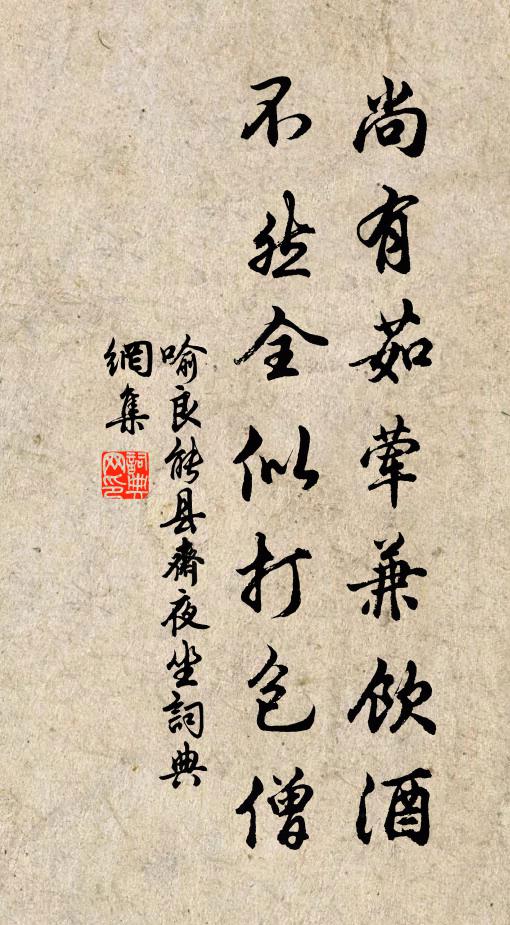 尚有茹荤兼饮酒
不然全似打包僧
喻良能县斋夜坐词典
網集
詞典
网印